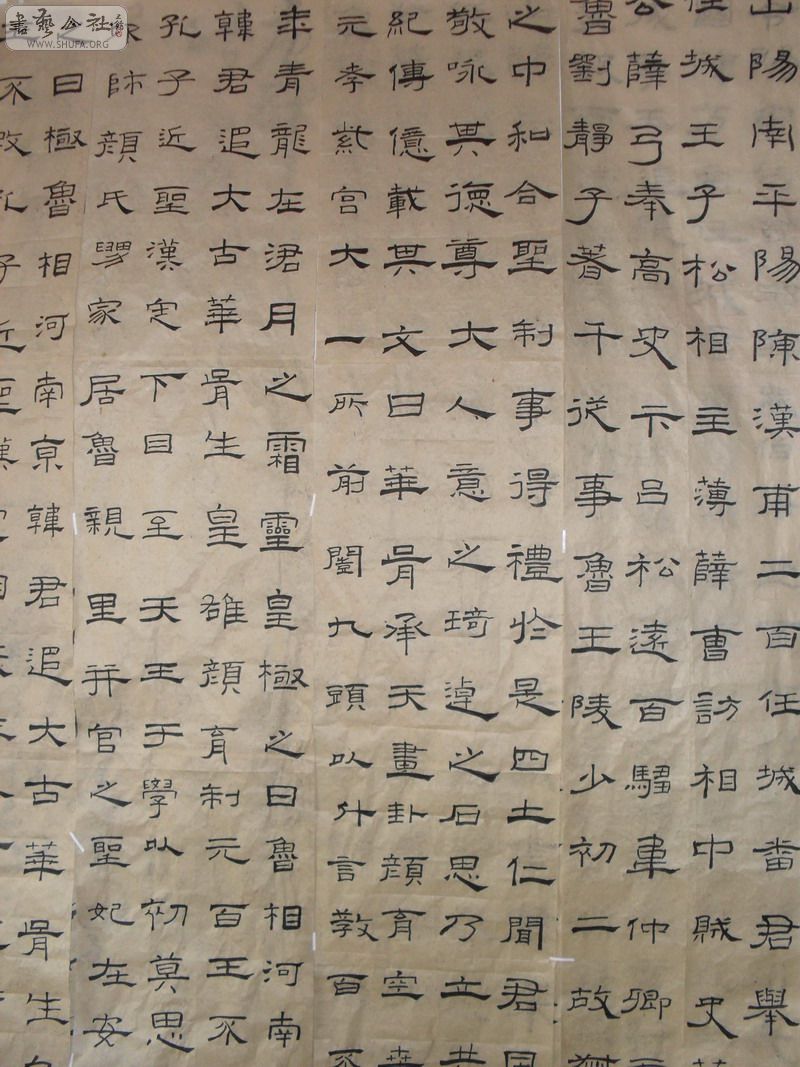 書藝公社
WWW.SHUFA.ORG
山陽南平陽陳漢甫二百任城番君舉
任城王子松相主薄薛曹訪相中賊史
公薛弓奉高史卞呂松遠百騶車仲卿二
魯劉靜子著千從事魯王陵少初二故
之中和合聖制事得禮於是四士仁聞君
敬咏其德尊大人意之琦逴之石思乃立共
紀傳億載其文曰華胥承天畫卦顏育空
元孝紫宮大一所前闓九頭以什言教百不
年青龍在涒月之霜靈皇極之日魯相河南
韓君追大古華胥生皇雄顏育制元百王不
孔子近聖漢定下目至天王于學以初莫思
師顏氏聖舅家居魯親里并官之聖妃在安
曰極魯相河南京韓君追大古華胥生
不改孔子近聖漢